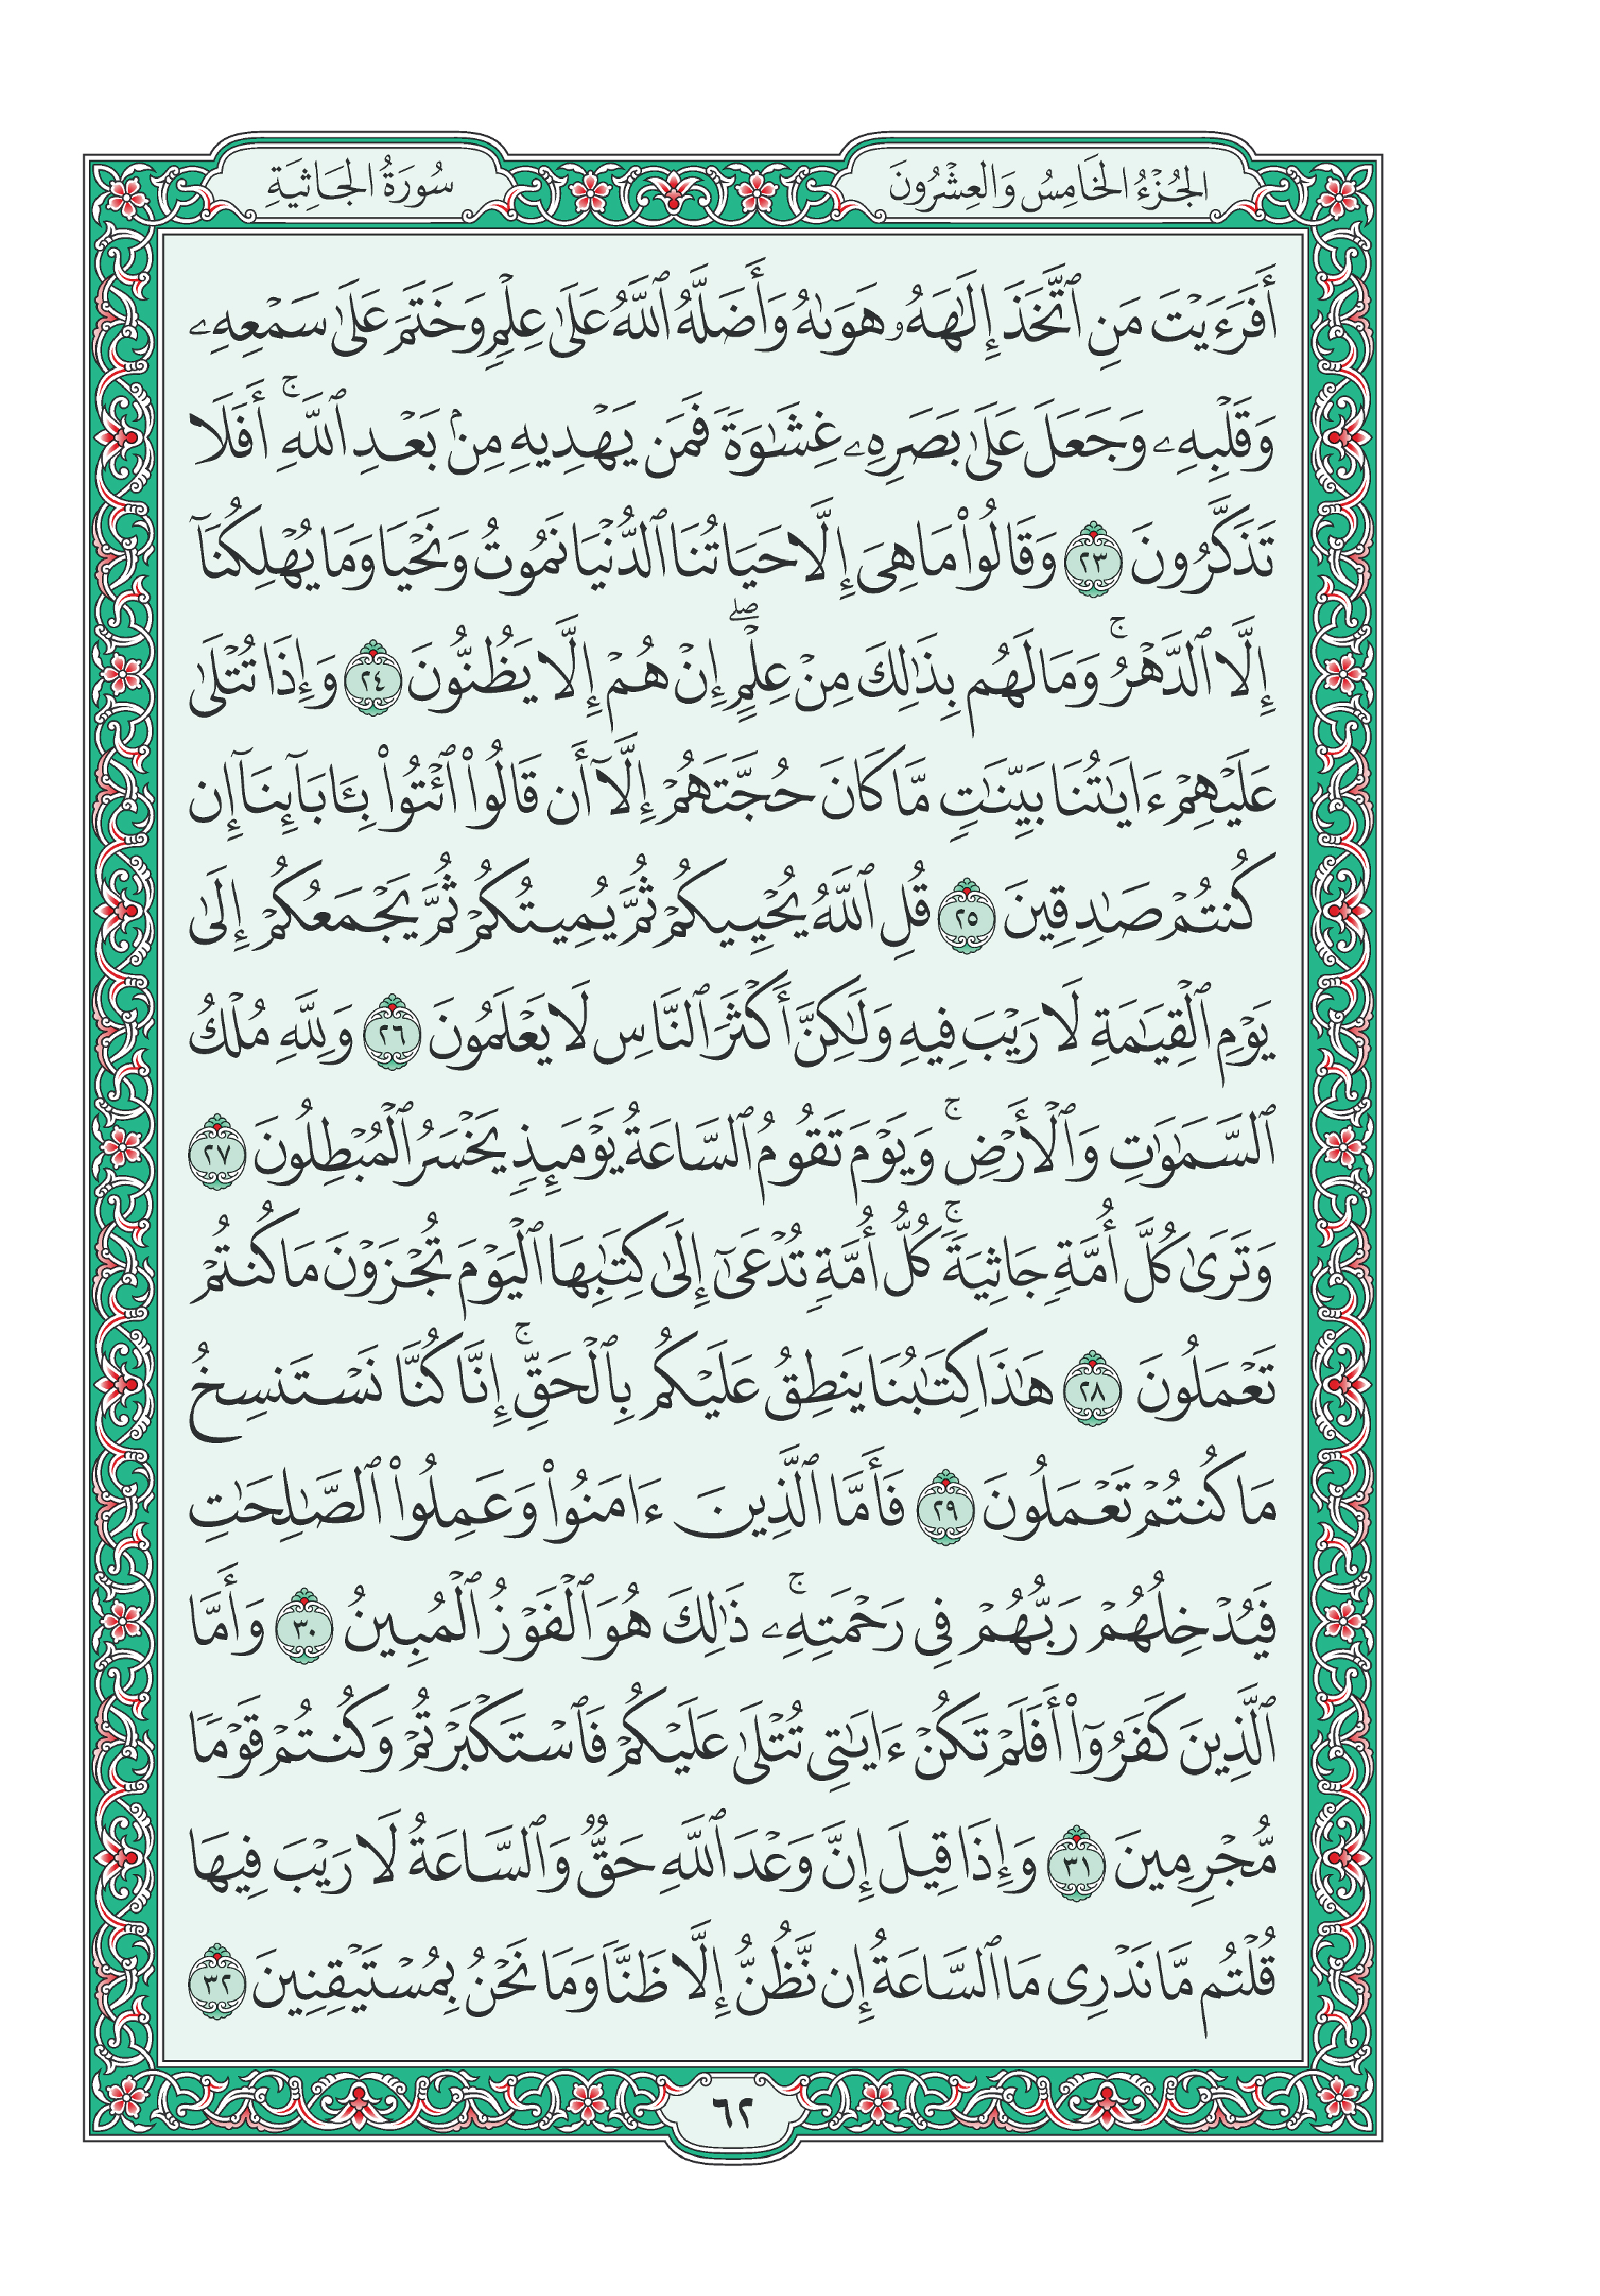 الجُزْءُ الخَامِسُ وَالعِشْرُونَ
سُورَةُ الجَاثِيَةِ
أَفَرَءَيْتَ مَنِ ٱتَّخَذَ إِلَٰهَهُۥ هَوَىٰهُ وَأَضَلَّهُ ٱللَّهُ عَلَىٰ عِلْمٍ وَخَتَمَ عَلَىٰ سَمْعِهِۦ
وَقَلْبِهِۦ وَجَعَلَ عَلَىٰ بَصَرِهِۦ غِشَٰوَةً فَمَن يَهْدِيهِ مِنۢ بَعْدِ ٱللَّهِۚ أَفَلَا
تَذَكَّرُونَ ٢٣ وَقَالُوا۟ مَا هِىَ إِلَّا حَيَاتُنَا ٱلدُّنْيَا نَمُوتُ وَنَحْيَا وَمَا يُهْلِكُنَآ
إِلَّا ٱلدَّهْرُۚ وَمَا لَهُم بِذَٰلِكَ مِنْ عِلْمٍۖ إِنْ هُمْ إِلَّا يَظُنُّونَ ٢٤ وَإِذَا تُتْلَىٰ
عَلَيْهِمْ ءَايَٰتُنَا بَيِّنَٰتٍ مَّا كَانَ حُجَّتَهُمْ إِلَّآ أَن قَالُوا۟ ٱئْتُوا۟ بِـَٔابَآئِنَآ إِن
كُنتُمْ صَٰدِقِينَ ٢٥ قُلِ ٱللَّهُ يُحْيِيكُمْ ثُمَّ يُمِيتُكُمْ ثُمَّ يَجْمَعُكُمْ إِلَىٰ
يَوْمِ ٱلْقِيَٰمَةِ لَا رَيْبَ فِيهِ وَلَٰكِنَّ أَكْثَرَ ٱلنَّاسِ لَا يَعْلَمُونَ ٢٦ وَلِلَّهِ مُلْكُ
ٱلسَّمَٰوَٰتِ وَٱلْأَرْضِۚ وَيَوْمَ تَقُومُ ٱلسَّاعَةُ يَوْمَئِذٍ يَخْسَرُ ٱلْمُبْطِلُونَ ٢٧
وَتَرَىٰ كُلَّ أُمَّةٍ جَاثِيَةًۚ كُلُّ أُمَّةٍ تُدْعَىٰٓ إِلَىٰ كِتَٰبِهَا ٱلْيَوْمَ تُجْزَوْنَ مَا كُنتُمْ
تَعْمَلُونَ ٢٨ هَٰذَا كِتَٰبُنَا يَنطِقُ عَلَيْكُم بِٱلْحَقِّۚ إِنَّا كُنَّا نَسْتَنسِخُ
مَا كُنتُمْ تَعْمَلُونَ ٢٩ فَأَمَّا ٱلَّذِينَ ءَامَنُوا۟ وَعَمِلُوا۟ ٱلصَّٰلِحَٰتِ
فَيُدْخِلُهُمْ رَبُّهُمْ فِى رَحْمَتِهِۦۚ ذَٰلِكَ هُوَ ٱلْفَوْزُ ٱلْمُبِينُ ٣٠ وَأَمَّا
ٱلَّذِينَ كَفَرُوٓا۟ أَفَلَمْ تَكُنْ ءَايَٰتِى تُتْلَىٰ عَلَيْكُمْ فَٱسْتَكْبَرْتُمْ وَكُنتُمْ قَوْمًا
مُّجْرِمِينَ ٣١ وَإِذَا قِيلَ إِنَّ وَعْدَ ٱللَّهِ حَقٌّ وَٱلسَّاعَةُ لَا رَيْبَ فِيهَا
قُلْتُم مَّا نَدْرِى مَا ٱلسَّاعَةُ إِن نَّظُنُّ إِلَّا ظَنًّا وَمَا نَحْنُ بِمُسْتَيْقِنِينَ ٣٢
٦٢